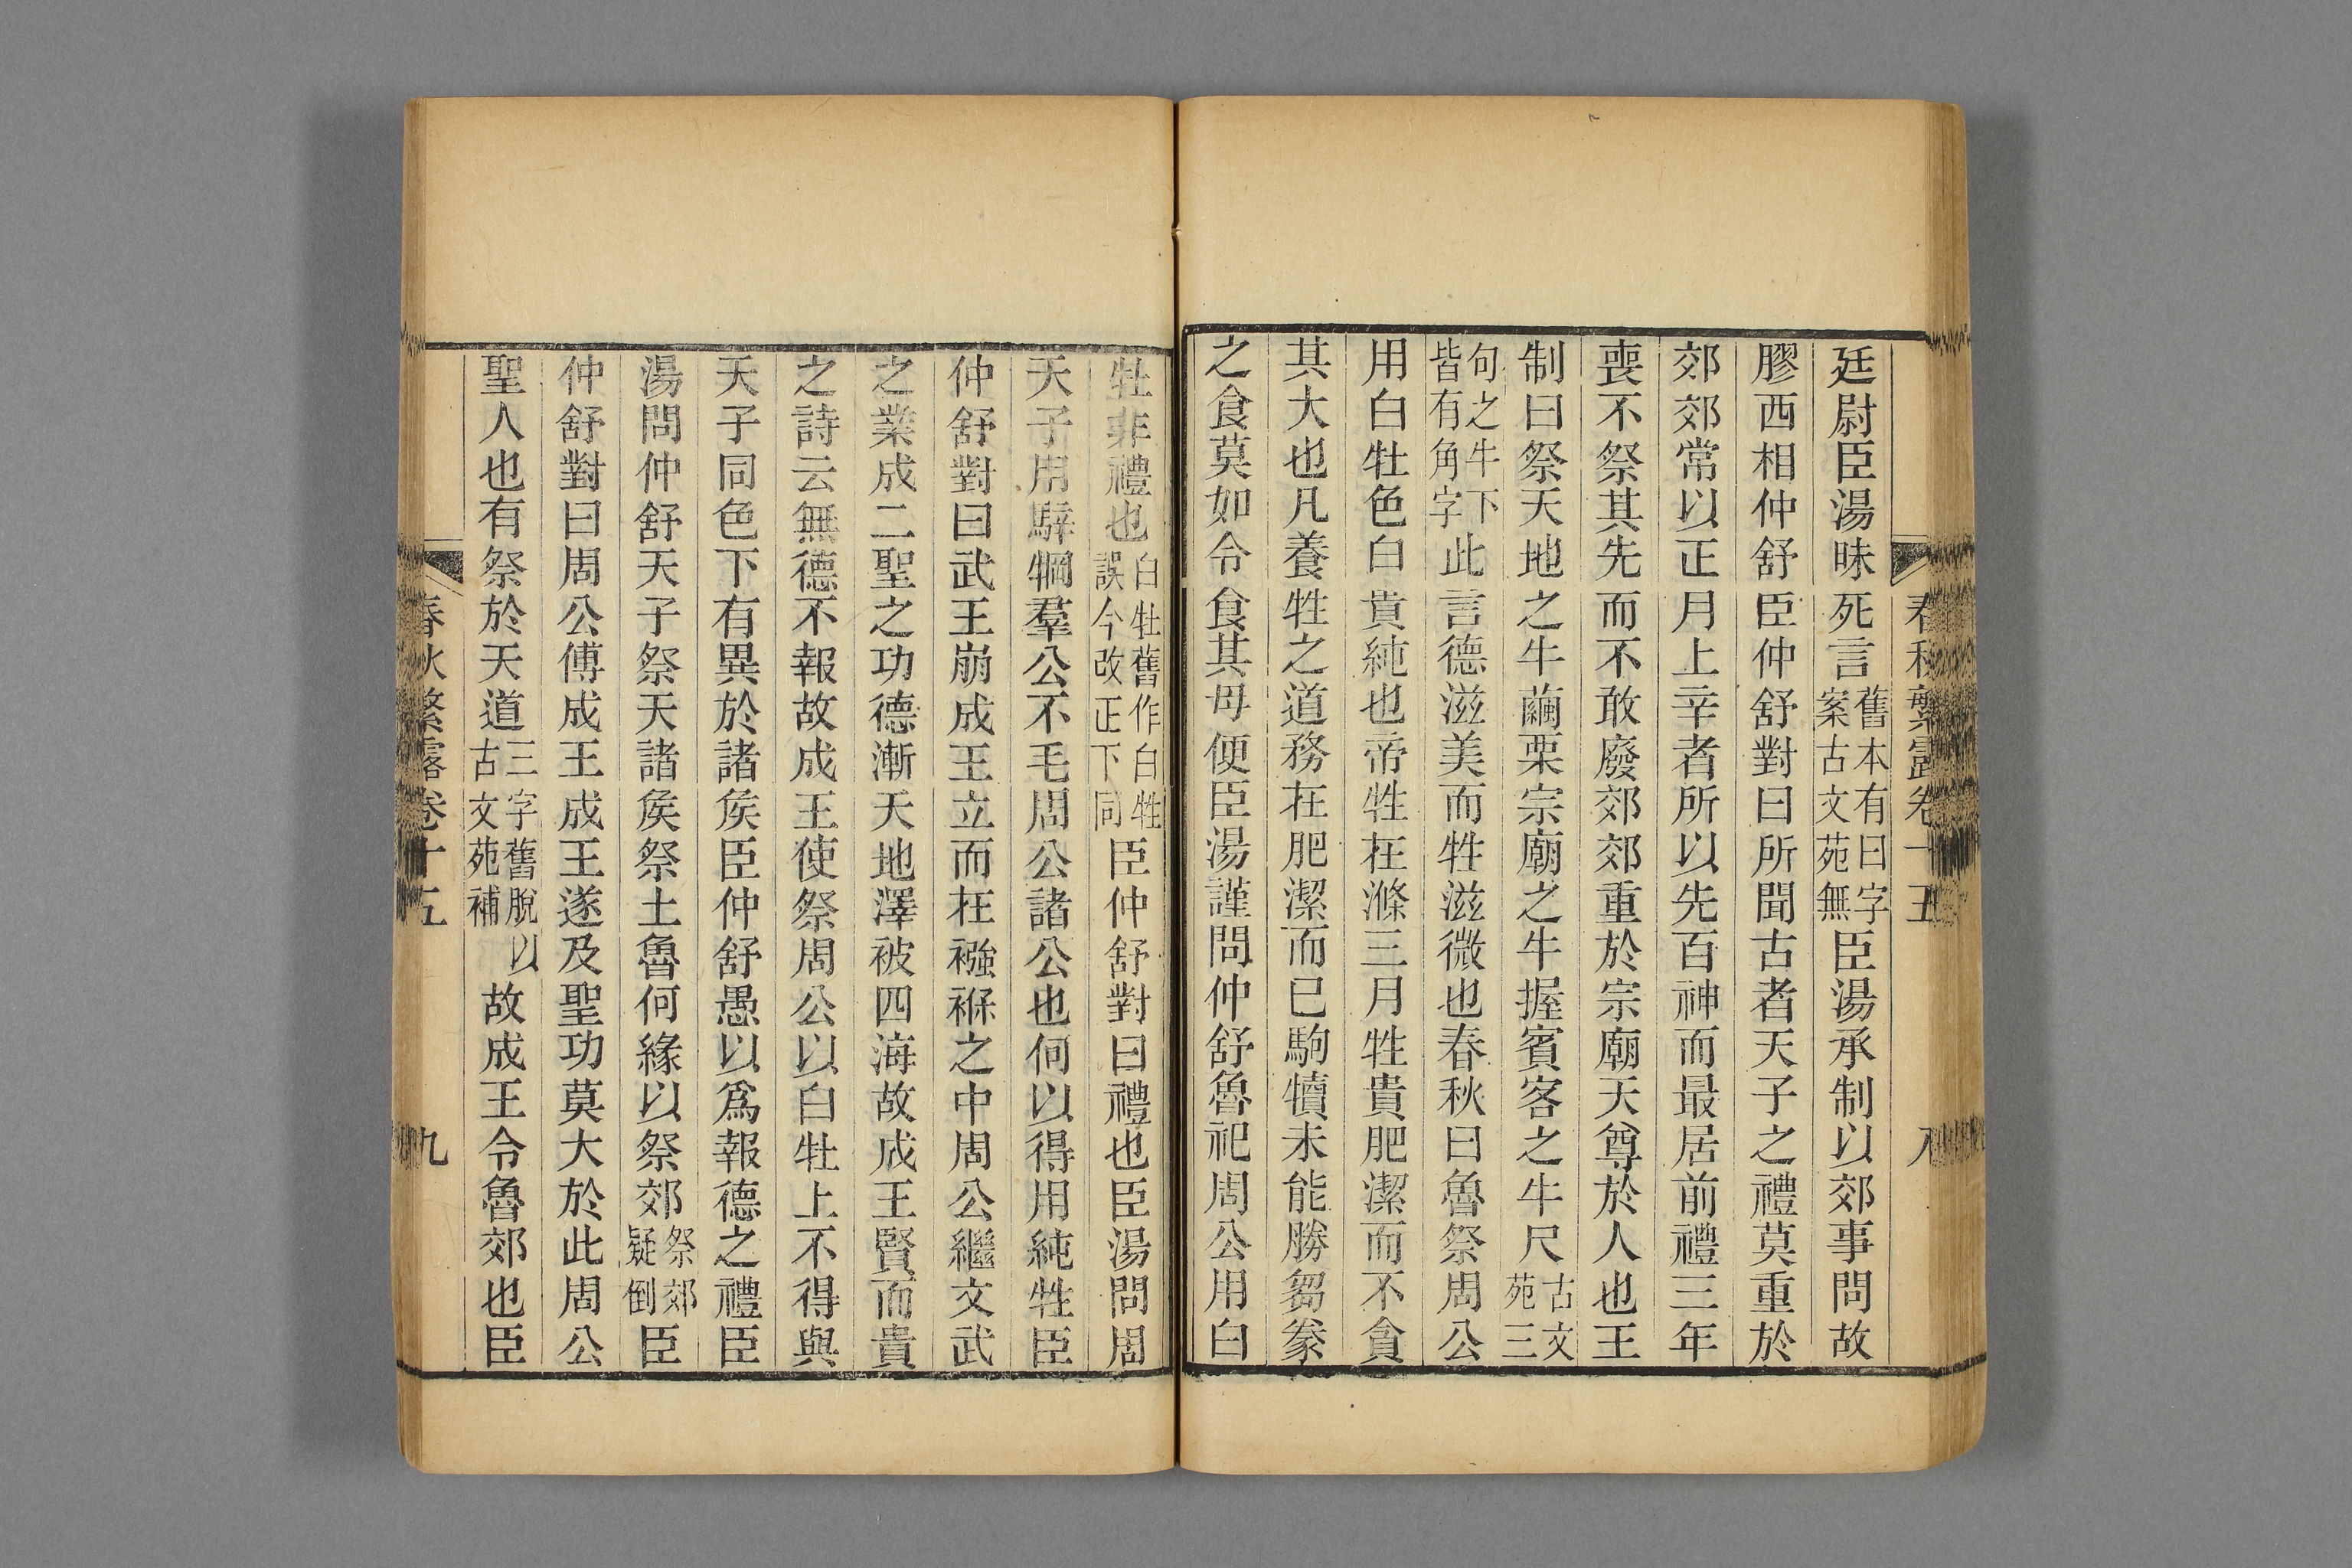 春秋繁露卷十五 八
廷尉臣湯昧死言舊本有曰字案古文苑無臣湯承制以郊事問故
膠西相仲舒臣仲舒對曰所聞古者天子之禮莫重於
郊郊常以正月上辛者所以先百神而最居前禮三年
喪不祭其先而不敢廢郊郊重於宗廟天尊於人也王
制曰祭天地之牛繭栗宗廟之牛握賓客之牛尺古文苑三
句之牛下皆有角字此言德滋美而牲滋微也春秋曰魯祭周公
用白牡色白貴純也帝牲在滌三月牲貴肥潔而不貪
其大也凡養牲之道務在肥潔而已駒犢未能勝芻豢
之食莫如令食其母便臣湯謹問仲舒魯祀周公用白
牡非禮也白牡舊作白牲誤今改正下同臣仲舒對曰禮也臣湯問周
天子用騂犅羣公不毛周公諸公也何以得用純牲臣
仲舒對曰武王崩成王立而在襁褓之中周公繼文武
之業成二聖之功德漸天地澤被四海故成王賢而貴
之詩云無德不報故成王使祭周公以白牡上不得與
天子同色下有異於諸矦臣仲舒愚以爲報德之禮臣
湯問仲舒天子祭天諸矦祭土魯何緣以祭郊祭郊疑倒臣
仲舒對曰周公傅成王成王遂及聖功莫大於此周公
聖人也有祭於天道三字舊脫以古文苑補故成王令魯郊也臣
春秋繁露卷十五 九